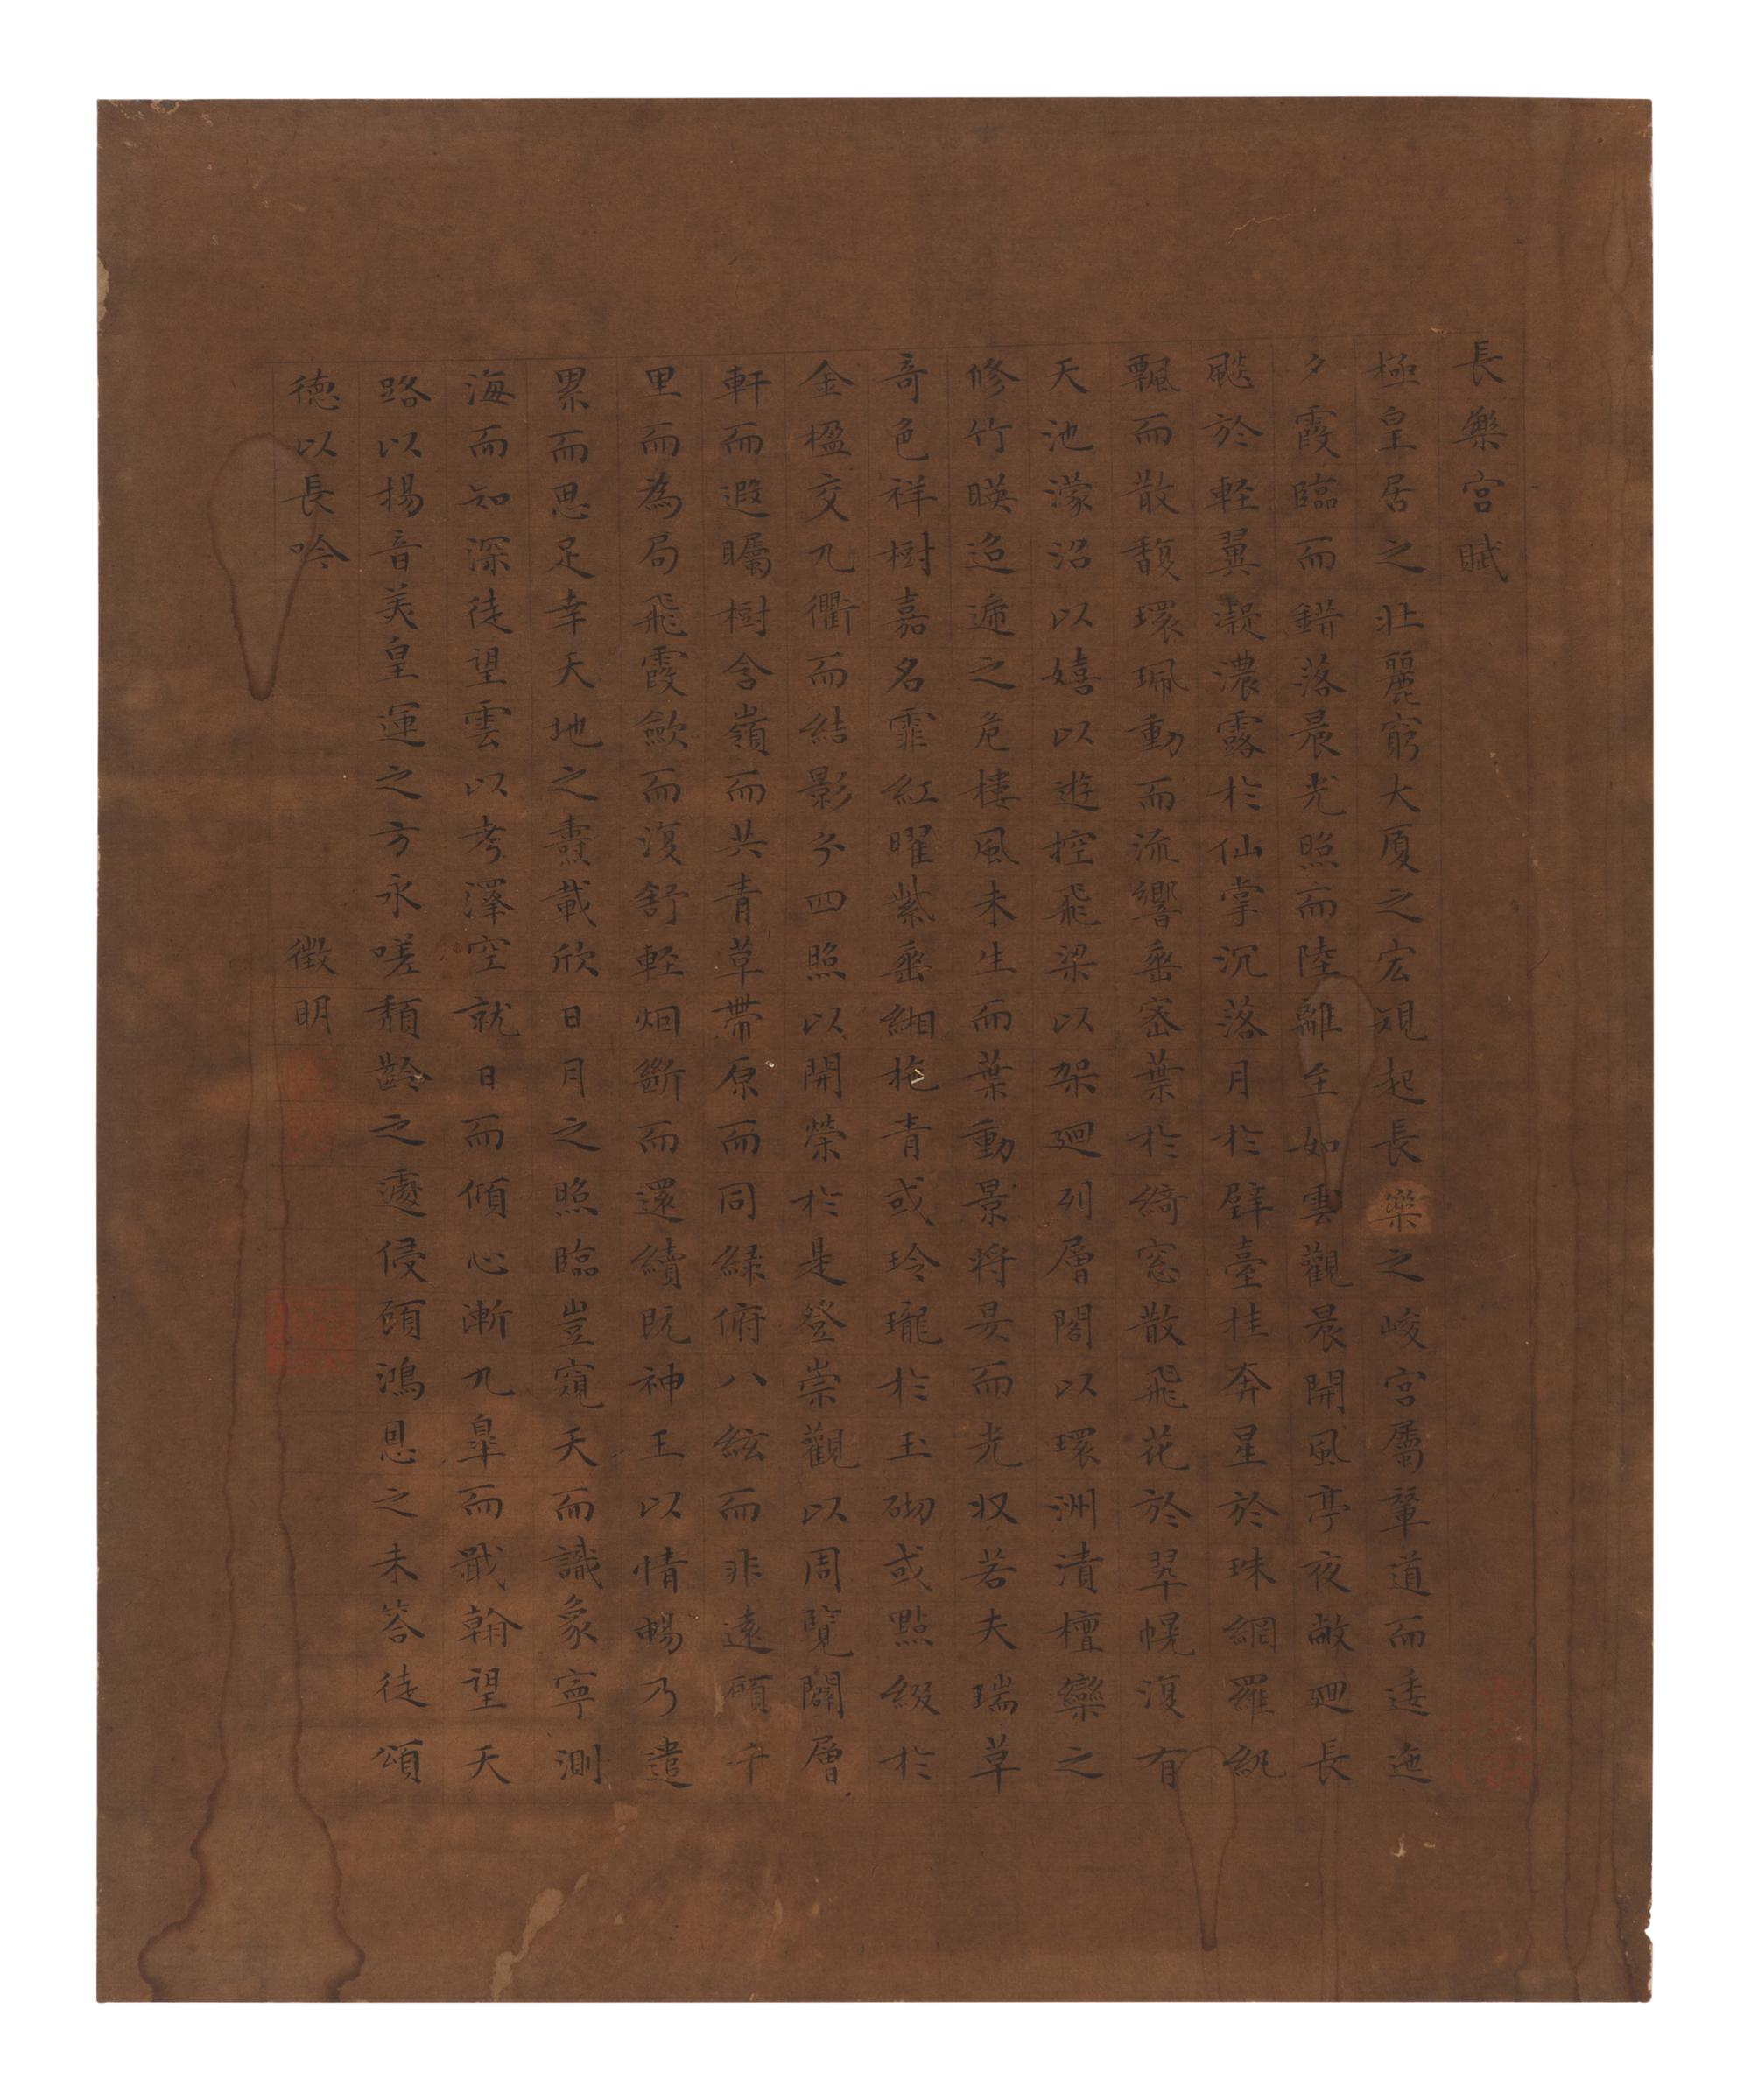 長樂宮賦
極皇居之壯麗窮大厦之宏規起長樂之峻宮屬輦道而逶迤
夕霞臨而錯落晨光照而陸離至如雲觀晨開風亭夜敞迴長
飈於輕翼凝濃露於仙掌沉落月於璧臺挂奔星於珠網羅紈
飄而散馥環珮動而流響密葉於綺窓散飛花於翠幌復有
天池濛沼以嬉以遊控飛梁以架迴列層閣以環洲漬檀欒之
修竹暎迢遰之危樓風未生而葉動景将昃而光収若夫瑞草
奇色祥樹嘉名霏紅曜紫垂緗拖青或玲瓏於玉砌或點綴於
金楹交九衢而結影分四照以開榮於是登崇觀以周覽闢層
軒而遐矚樹含嶺而共青草帶原而同緑俯八紘而非遠顧千
里而為局飛霞歛而復舒軽烟斷而還續既神王以情暢乃遣
累而思足幸天地之燾載欣日月之照臨豈窺天而識象寧測
海而知深徒望雲以考澤空就日而傾心漸九皐而戢翰望天
路以揚音美皇運之方永嗟頽齡之遽侵顧鴻恩之未答徒頌
徳以長吟　徴明